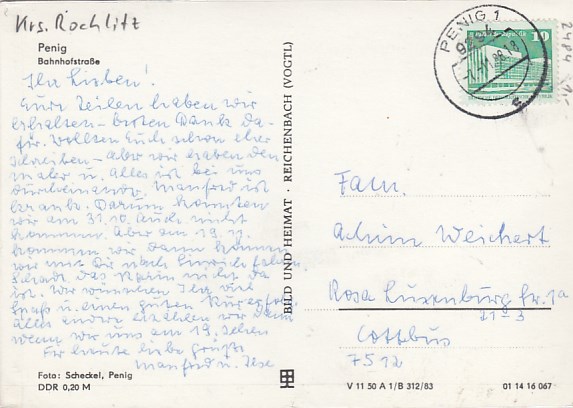 Krs. Rochlitz
Penig
Bahnhofstraße
Ihr Lieben!
Eure Zeilen haben wir
erhalten – besten Dank da-
für. Wollten Euch schon eher
schreiben – aber wir haben den
Maler u. alles ist bei uns
durcheinander. Manfred ist
krank. Darum konnten
wir am 31.10. auch nicht
kommen. Aber am 19.11.
kommen wir. Dann können
wir mit Dir nach fahren.
Schade das Karin nicht da
ist. Wir wünschen Ihr viel
Spaß u. einen guten Kurerfolg.
Alles andere erzählen wir dann
wenn wir uns am 19. sehen
Für heute liebe Grüße
Manfred u. Ilse
Foto: Scheckel, Penig
DDR 0,20 M
BILD UND HEIMAT · REICHENBACH (VOGTL)
PENIG 1
9294
10
2484
1,-
Fam.
Achim Weichert
Rosa Luxemburg Str. 1a
21-3
Cottbus
7512
V 11 50 A 1/B 312/83
01 14 16 067